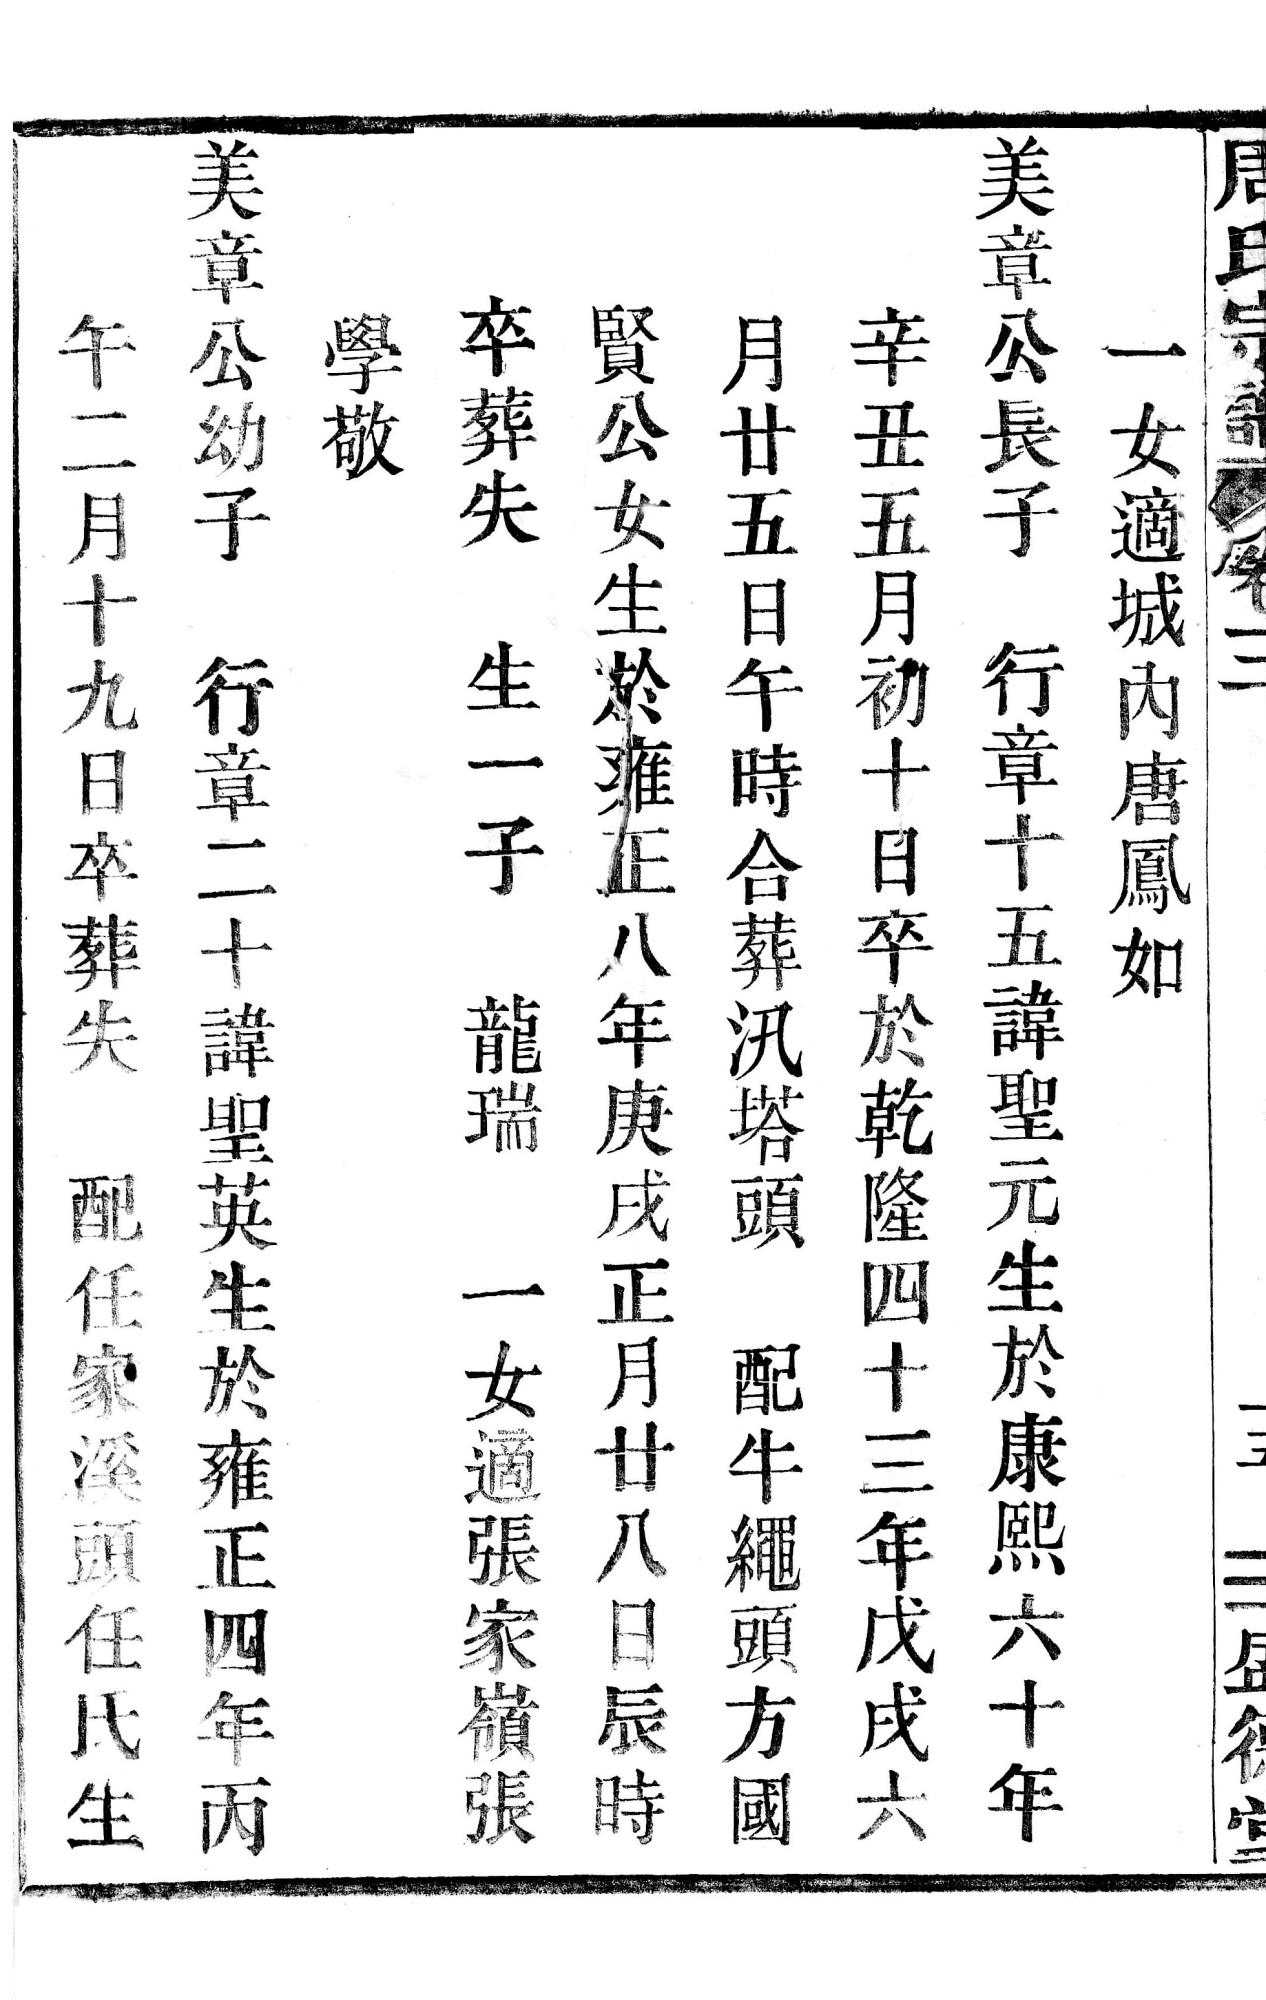 周氏宗譜 卷三 十五 三 盛德堂
一女適城内唐鳳如
美章公長子 行章十五諱聖元生於康熙六十年
辛丑五月初十日卒於乾隆四十三年戊戌六
月廿五日午時合葬汛塔頭 配牛繩頭方國
賢公女生於雍正八年庚戌正月廿八日辰時
卒葬失 生一子 龍瑞 一女適張家嶺張
學敬
美章公幼子 行章二十諱聖英生於雍正四年丙
午二月十九日卒葬失 配任家溪頭任氏生